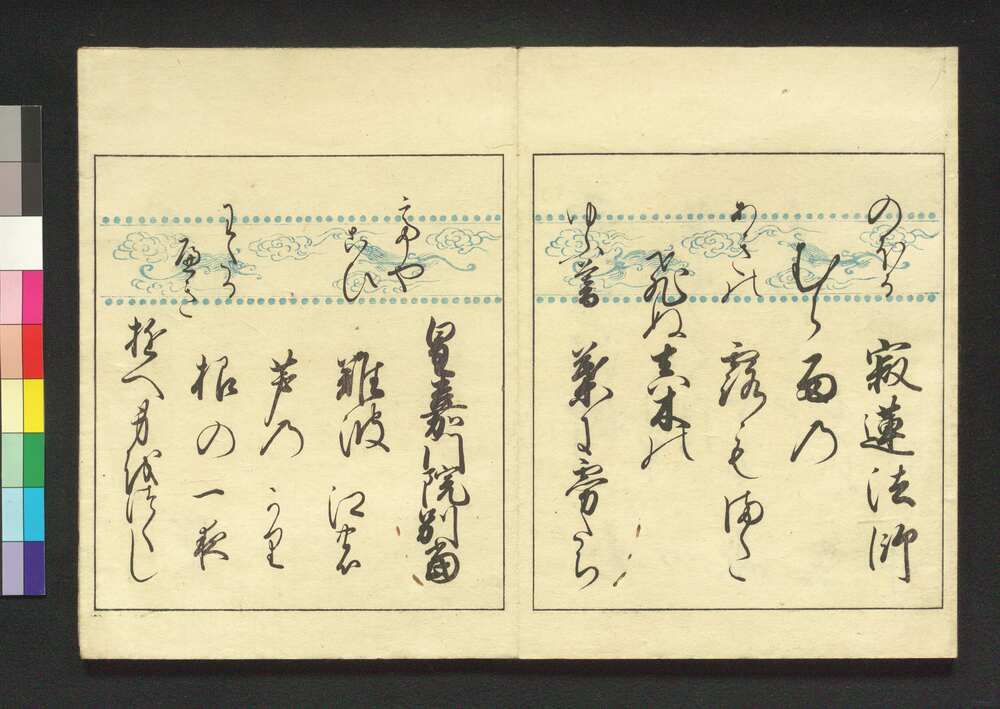 寂蓮法師
むら雨の
露もまた
ひぬ真木の
葉に霧たち
のほる
あきの
ゆふ暮
皇嘉門院別當
難波江の
芦のかり
根の一夜
ゆへ身をつくし
てや
こひ
わたる
へき